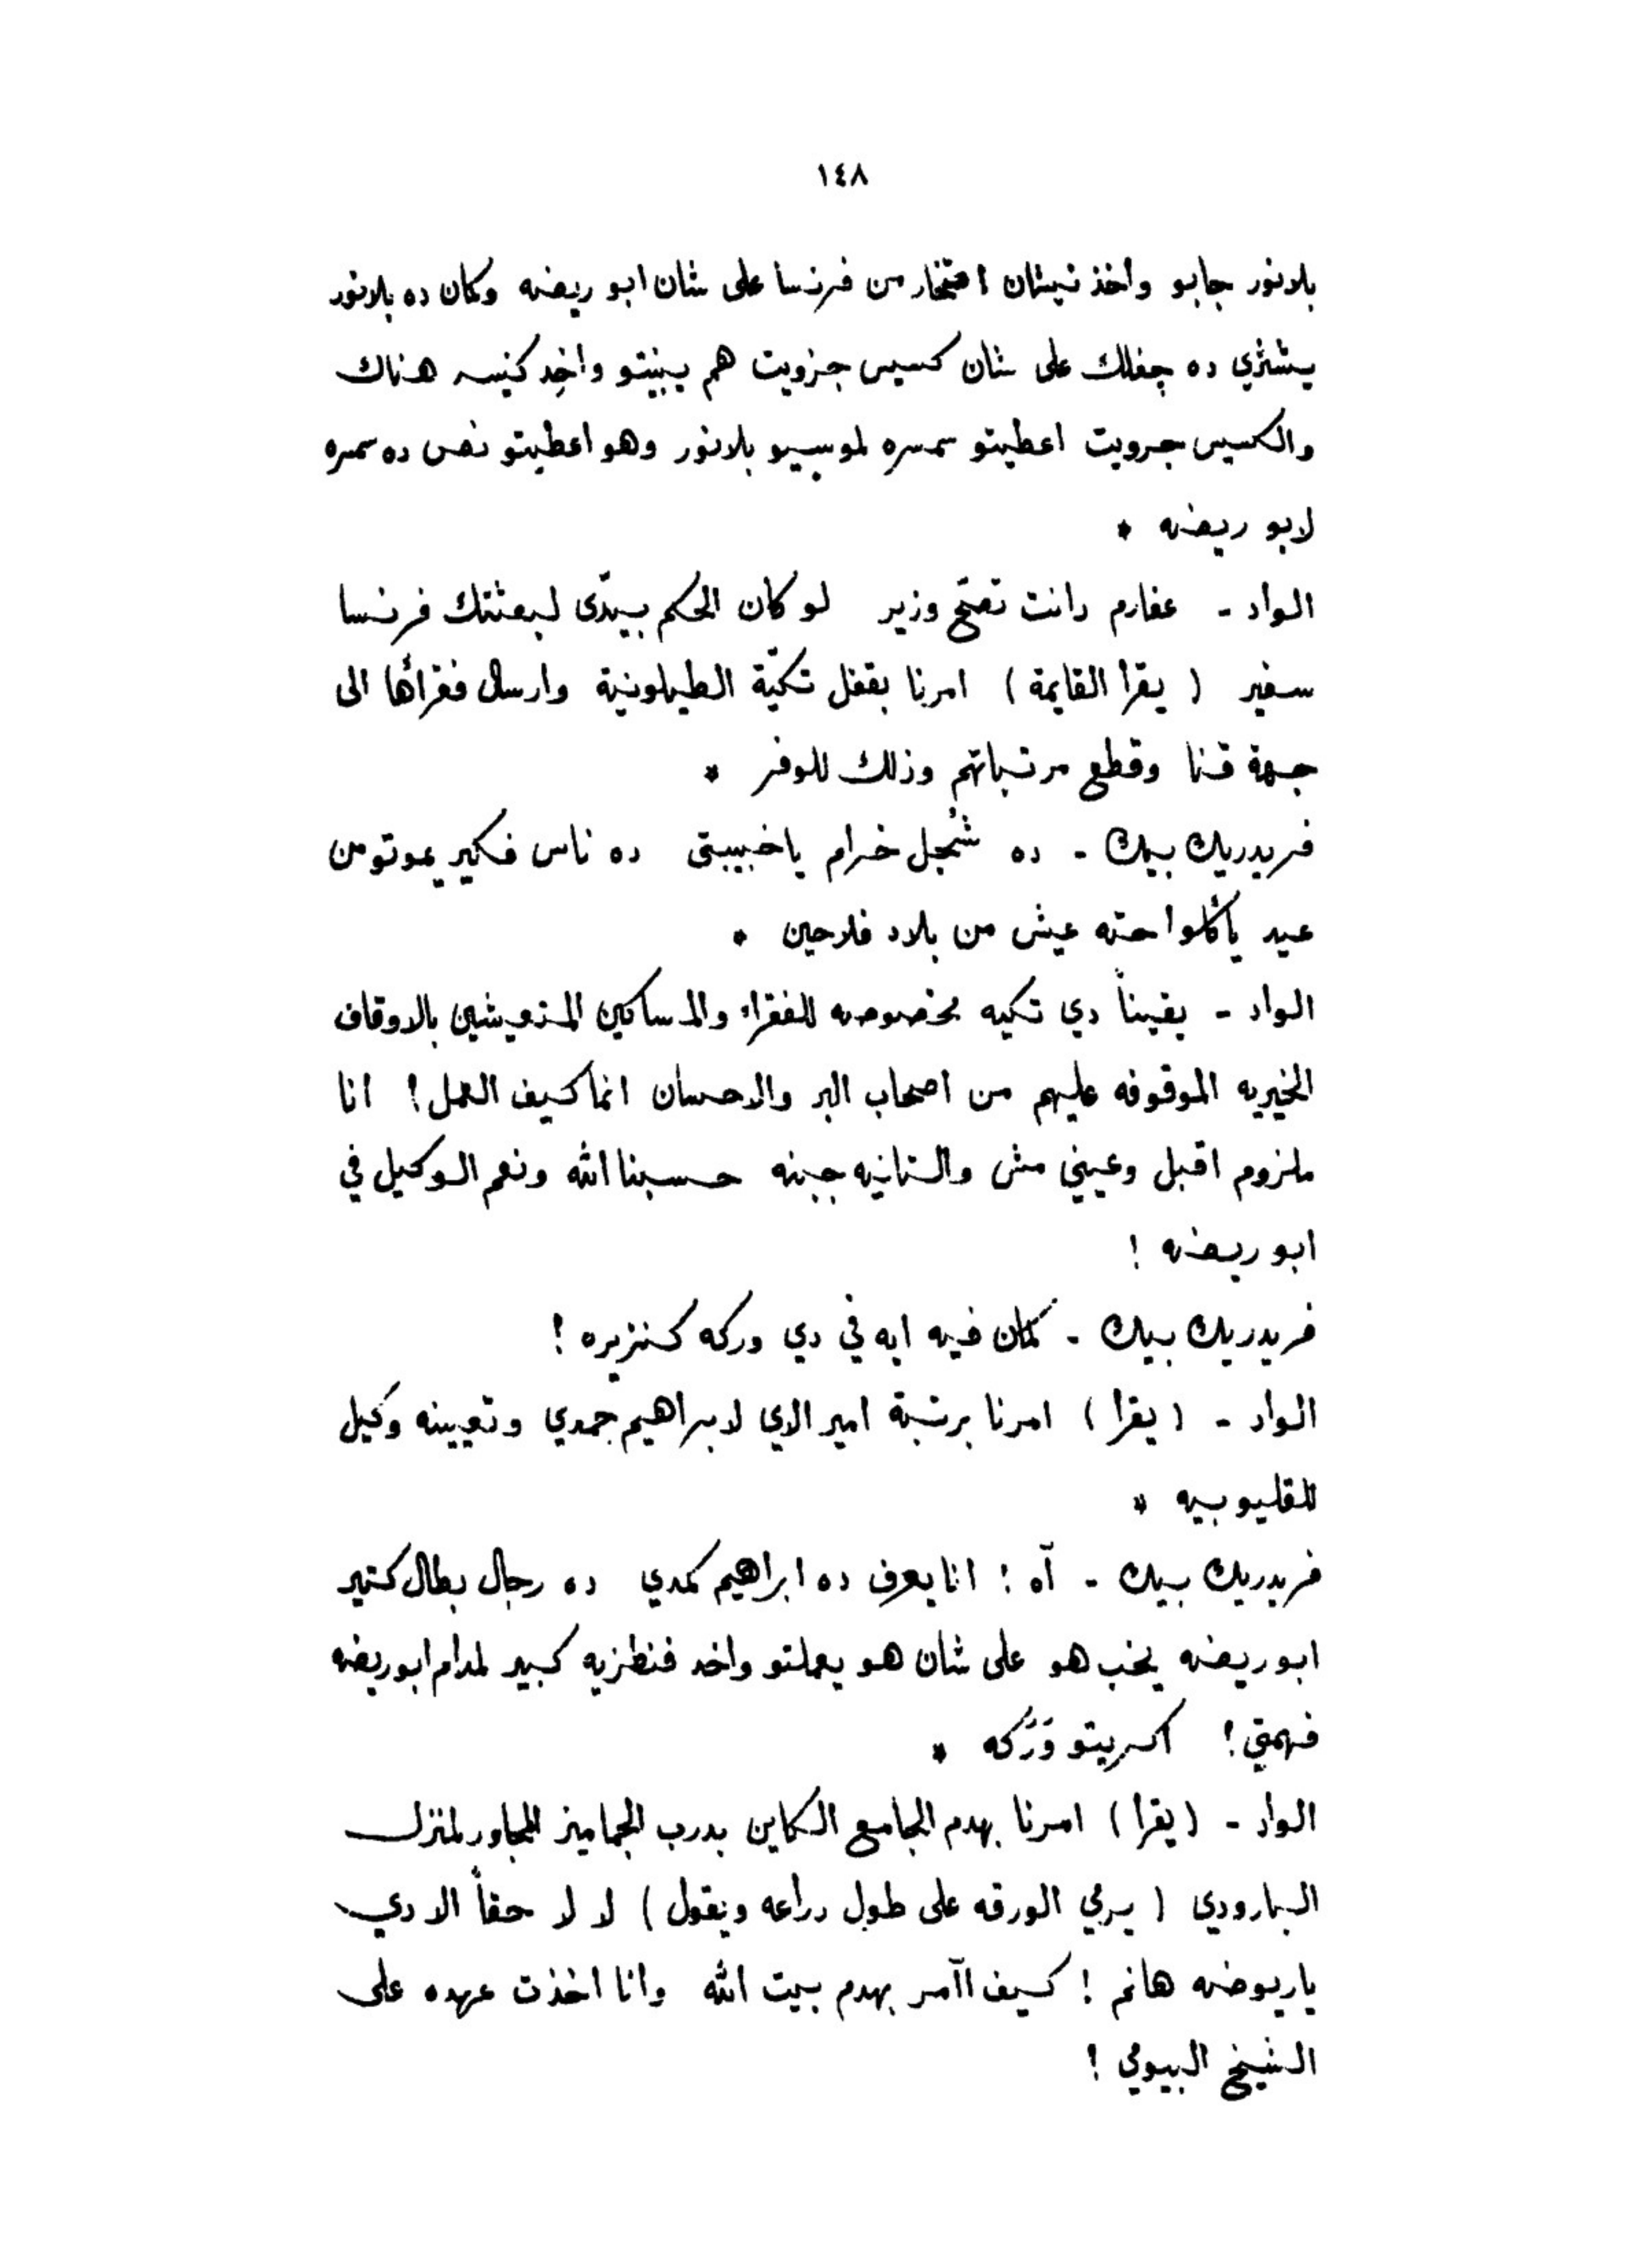 ١٤٨
بلانور جابو واخذ نيشان افتخار من فرنسا على شان ابو ريضه وكمان ده بلانور
يشتري ده جفلك على شان كسيس جزويت هم يبنيتو واخِد كنيسه هناك
والكسيس جرويت اعطيتو سمسره لموسيو بلانور وهو اعطيتو نص ده سمسره
لابو ريضه *
الواد - عفارم دانت تصَح وزير لو كان الحكم بيدّى لبعثتك فرنسا
سفير ( يقرا القايمة ) امرنا بقفل تكيّة الطيلونية وارسال فقرأها الى
جهة قنا وقطع مرتباتهم وذلك للوفر *
فريدريك بيك - ده شُجل خرام ياخبيبتى ده ناس فكير يموتو من
عيد يأكلوا حته عيش من بلاد فلاحين *
الواد - يقيناً دي تكيه مخصوصه للفقراء والمساكين المتعيشين بالاوقاف
الخيريه الموقوفه عليهم من اصحاب البر والاحسان انما كيف العمل! انا
ملزوم اقبل وعيني مش والتانيه جبنه حسبنا الله ونعم الوكيل في
ابو ريضه !
فريدريك بيك - كمان فيه ايه في دي وركه كنزيره !
الواد - ( يقرا ) امرنا برتبة امير الاي لابراهيم حمدي وتعيينه وكيل
للقليوبيه *
فريدريك بيك - آه ! انا يعرف ده ابراهيم كمدي ده رجال بطال كتير
ابو ريضه يخب هو على شان هو يعملتو واخد فنطزيه كبير لمدام ابو ريضه
فهمتي ! اكسريتو وَرَكه *
الواد - ( يقرا ) امرنا بهدم الجامع الكاين بدرب الجماميز المجاور لمنزل
البارودي ( يرمي الورقه على طول دراعه ويقول ) لا لا حقاً الا دي
ياريوضه هانم ! كيف اآمر بهدم بيت الله وانا اخذت عهده على
الشيخ البيومي !